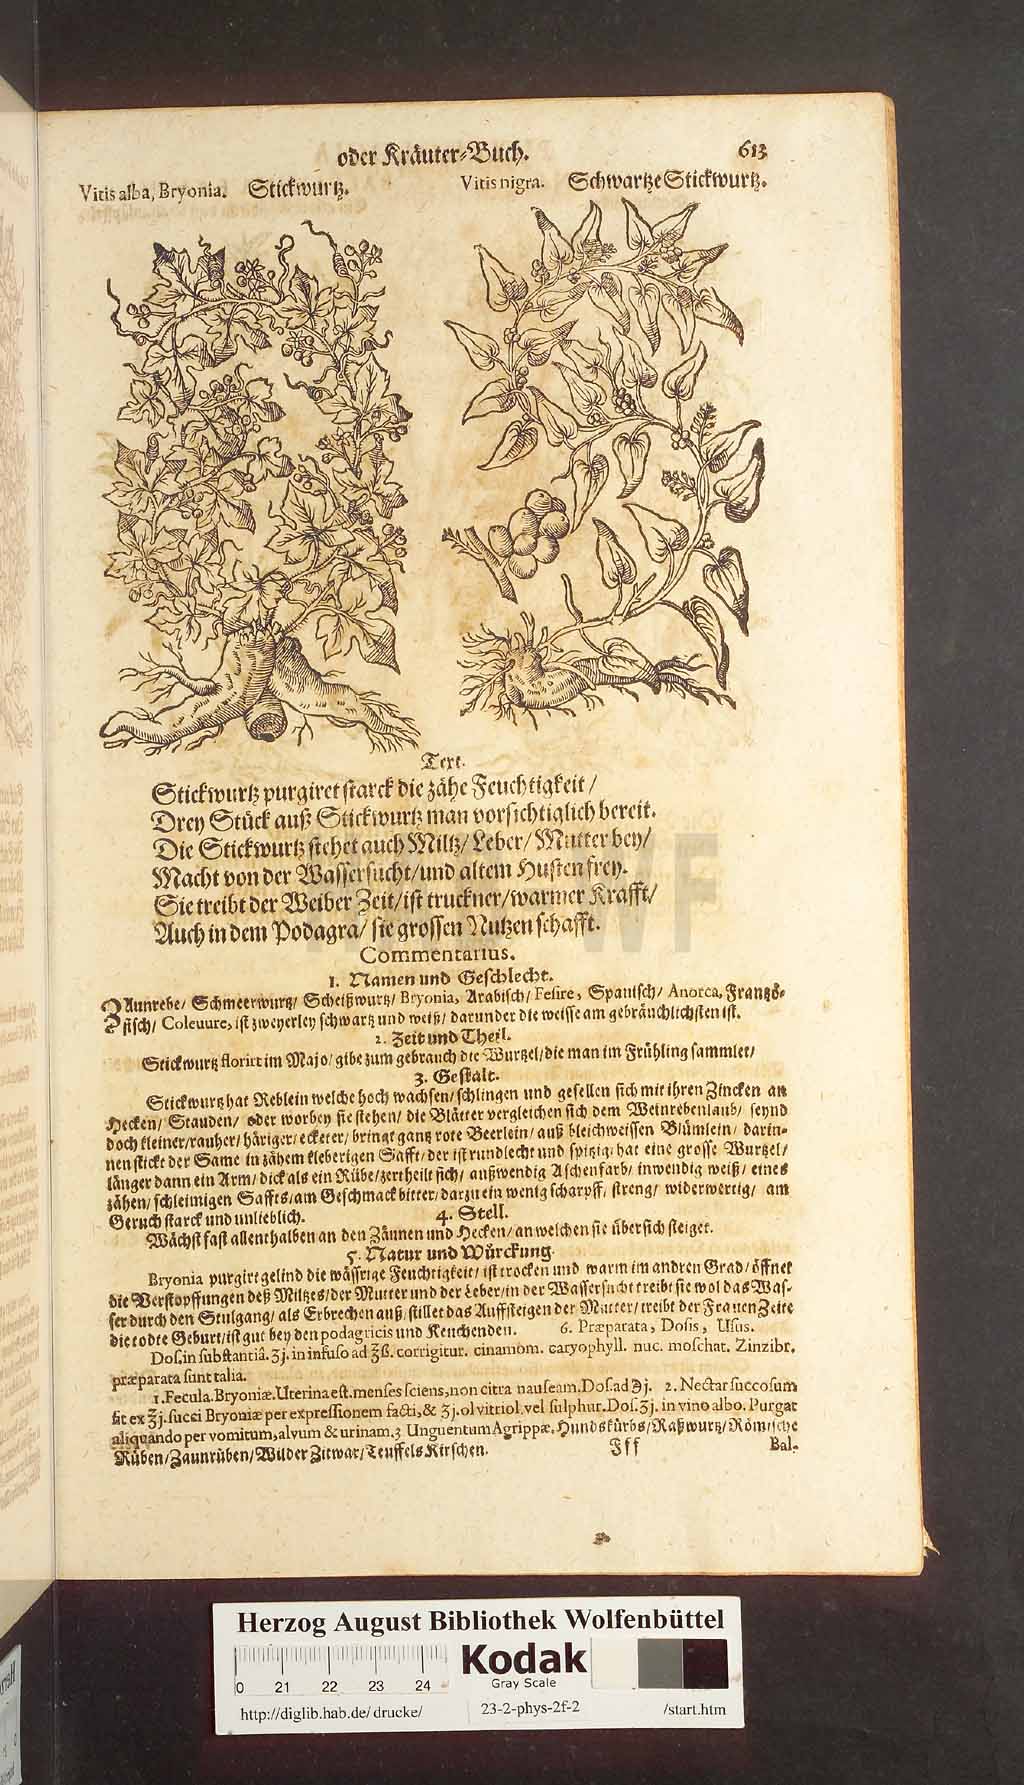 oder Kräuter-Buch. 613
Vitis alba, Bryonia. Stickwurtz.
Vitis nigra. Schwartze Stickwurtz.
Text.
Stickwurtz purgiret starck die zähe Feuchtigkeit /
Drey Stück auß Stickwurtz man vorsichtiglich bereit.
Die Stickwurtz stehet auch Miltz / Leber / Mutter bey /
Macht von der Wassersucht / und altem Husten frey.
Sie treibt der Weiber Zeit / ist truckner / warmer Krafft /
Auch in dem Podagra / sie grossen Nutzen schafft.
Commentarius.
1. Namen und Geschlecht.
ZAunrebe / Schmeerwurtz / Scheißwurtz / Bryonia, Arabisch / Fesire, Spanisch / Anorca, Frantzö-
sisch / Coleuure, ist zweyerley schwartz und weiß / darunder die weisse am gebräuchlichsten ist.
2. Zeit und Theil.
Stickwurtz florirt im Majo / gibt zum gebrauch die Wurtzel / die man im Frühling samlet /
3. Gestalt.
Stickwurtz hat Reblein welche hoch wachsen / schlingen und gesellen sich mit ihren Zincken an
Hecken / Stauden / oder worbey sie stehen / die Blätter vergleichen sich dem Weinrebenlaub / seynd
doch kleiner / rauher / häriger / ecketer / bringt gantz rote Beerlein / auß bleichweissen Blümlein / darin-
nen stickt der Same in zähem kleberigen Safft / der ist rundlecht und spitzig / hat eine grosse Wurtzel /
länger dann ein Arm / dick als ein Rübe / zertheilt sich / außwendig Aschenfarb / inwendig weiß / eines
zähen / schleimigen Saffts / am Geschmack bitter / darzu ein wenig scharpff / streng / widerwertig / am
Geruch starck und unlieblich. 4. Stell.
Wächst fast allenthalben an den Zäunnen und Hecken / an welchen sie übersich steiget.
5. Natur und Würckung.
Bryonia purgirt gelind die wässrige Feuchtigkeit / ist trocken und warm im andren Grad / öffnet
die Verstopffungen deß Miltzes / der Mutter und der Leber / in der Wassersucht treibt sie wol das Was-
ser durch den Stulgang / als Erbrechen auß / stillet das Auffsteigen der Mutter / treibt der Frauen Zeit
die todte Geburt / ist gut bey den podagricis und Keuchenden. 6. Præparata, Dosis, Usus.
Dos. in substantiâ. ʒj. in infuso ad ʒß. corrigitur. cinamom. caryophyll. nuc. moschat. Zinzibr.
præparata sunt talia.
1. Fecula. Bryoniæ. Uterina est. menses sciens, non citra nauseam. Dos. ad ℈j. 2. Nectar succosum
fit ex ʒj. succi Bryoniæ per expressionem facti, & ʒj. ol vitriol. vel sulphur. Dos. ʒj. in vino albo. Purgat
aliquando per vomitum, alvum & urinam. 3 Unguentum Agrippæ. Hundskürbs / Raßwurtz / Römische
Rüben / Zaunrüben / Wilder Zitwar / Teuffels Kirschen. Fff Bal-
Herzog August Bibliothek Wolfenbüttel
Kodak
Gray Scale
0 21 22 23 24
http://diglib.hab.de/drucke/ 23-2-phys-2f-2 /start.htm